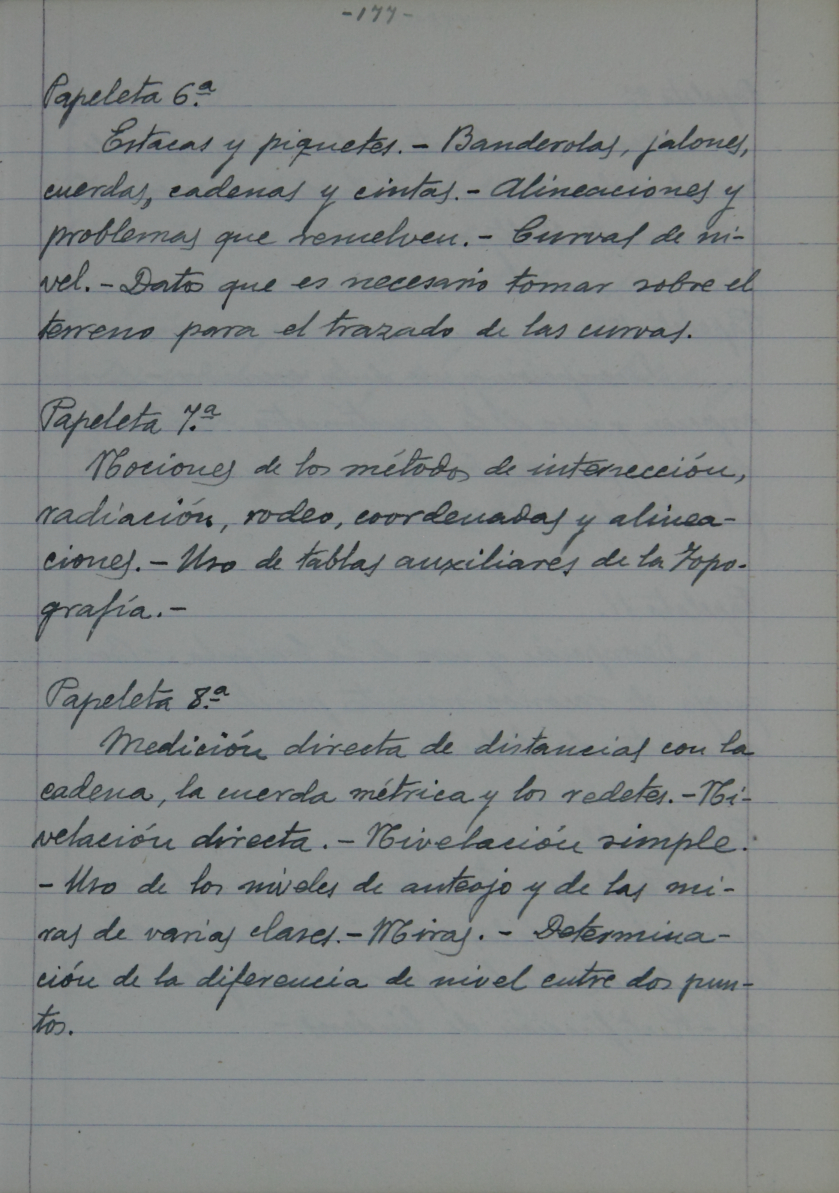 -177-
Papeleta 6.ª
Estacas y piquetes.- Banderolas, jalones,
cuerdas, cadenas y cintas.- Alineaciones y
problemas que resuelven.- Curvas de ni-
vel.- Datos que es necesario tomar sobre el
terreno para el trazado de las curvas.
Papeleta 7.ª
Nociones de los métodos de intersección,
radiación, rodeo, coordenadas y alinea-
ciones.- Uso de tablas auxiliares de la Topo-
grafía.-
Papeleta 8.ª
Medición directa de distancias con la
cadena, la cuerda métrica y los redetes.- Ni-
velación directa.- Nivelación simple.
- Uso de los niveles de anteojo y de las mi-
ras de varias clases.- Miras.- Determina-
ción de la diferencia de nivel entre dos pun-
tos.